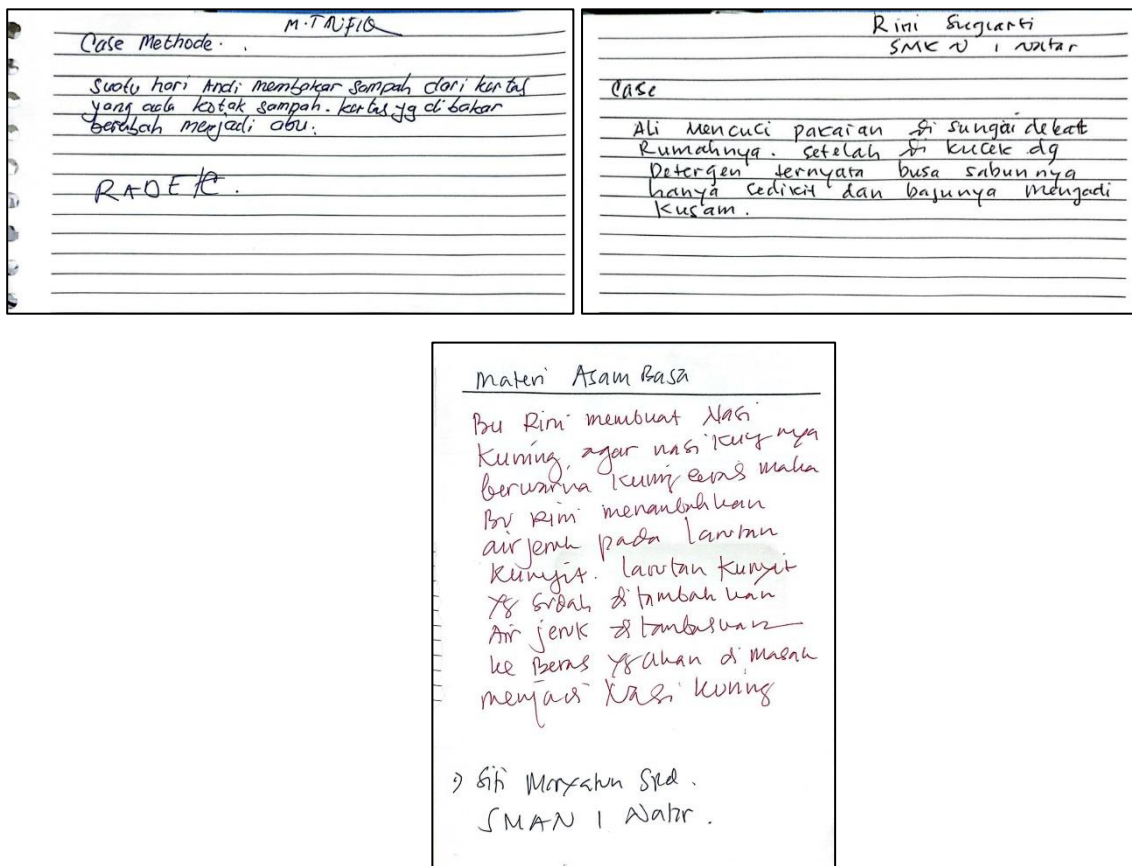 M. TAUFIQ
Case Methode.
Suatu hari Andi membakar sampah dari kertas
yang ada kotak sampah. kertas yg di bakar
berubah menjadi abu.
Rini Sugiarti
SMK N 1 Natar
Case
Ali Mencuci pakaian di sungai dekat
Rumahnya. setelah di kucek dg
Detergen ternyata busa sabunnya
hanya sedikit dan bajunya mengadi
kusam.
Materi Asam Basa
Bu Rini membuat Nasi
Kuning, agar nasi kuningnya
berwarna kuning cerah maka
Bu Rini menambahkan
air jeruk pada larutan
kunyit. larutan kunyit
yg sudah ditambahkan
Air jeruk ditambahkan
ke Beras yg akan dimasak
menjadi Nasi kuning
Siti Maryatun Spd.
SMAN 1 Natar.